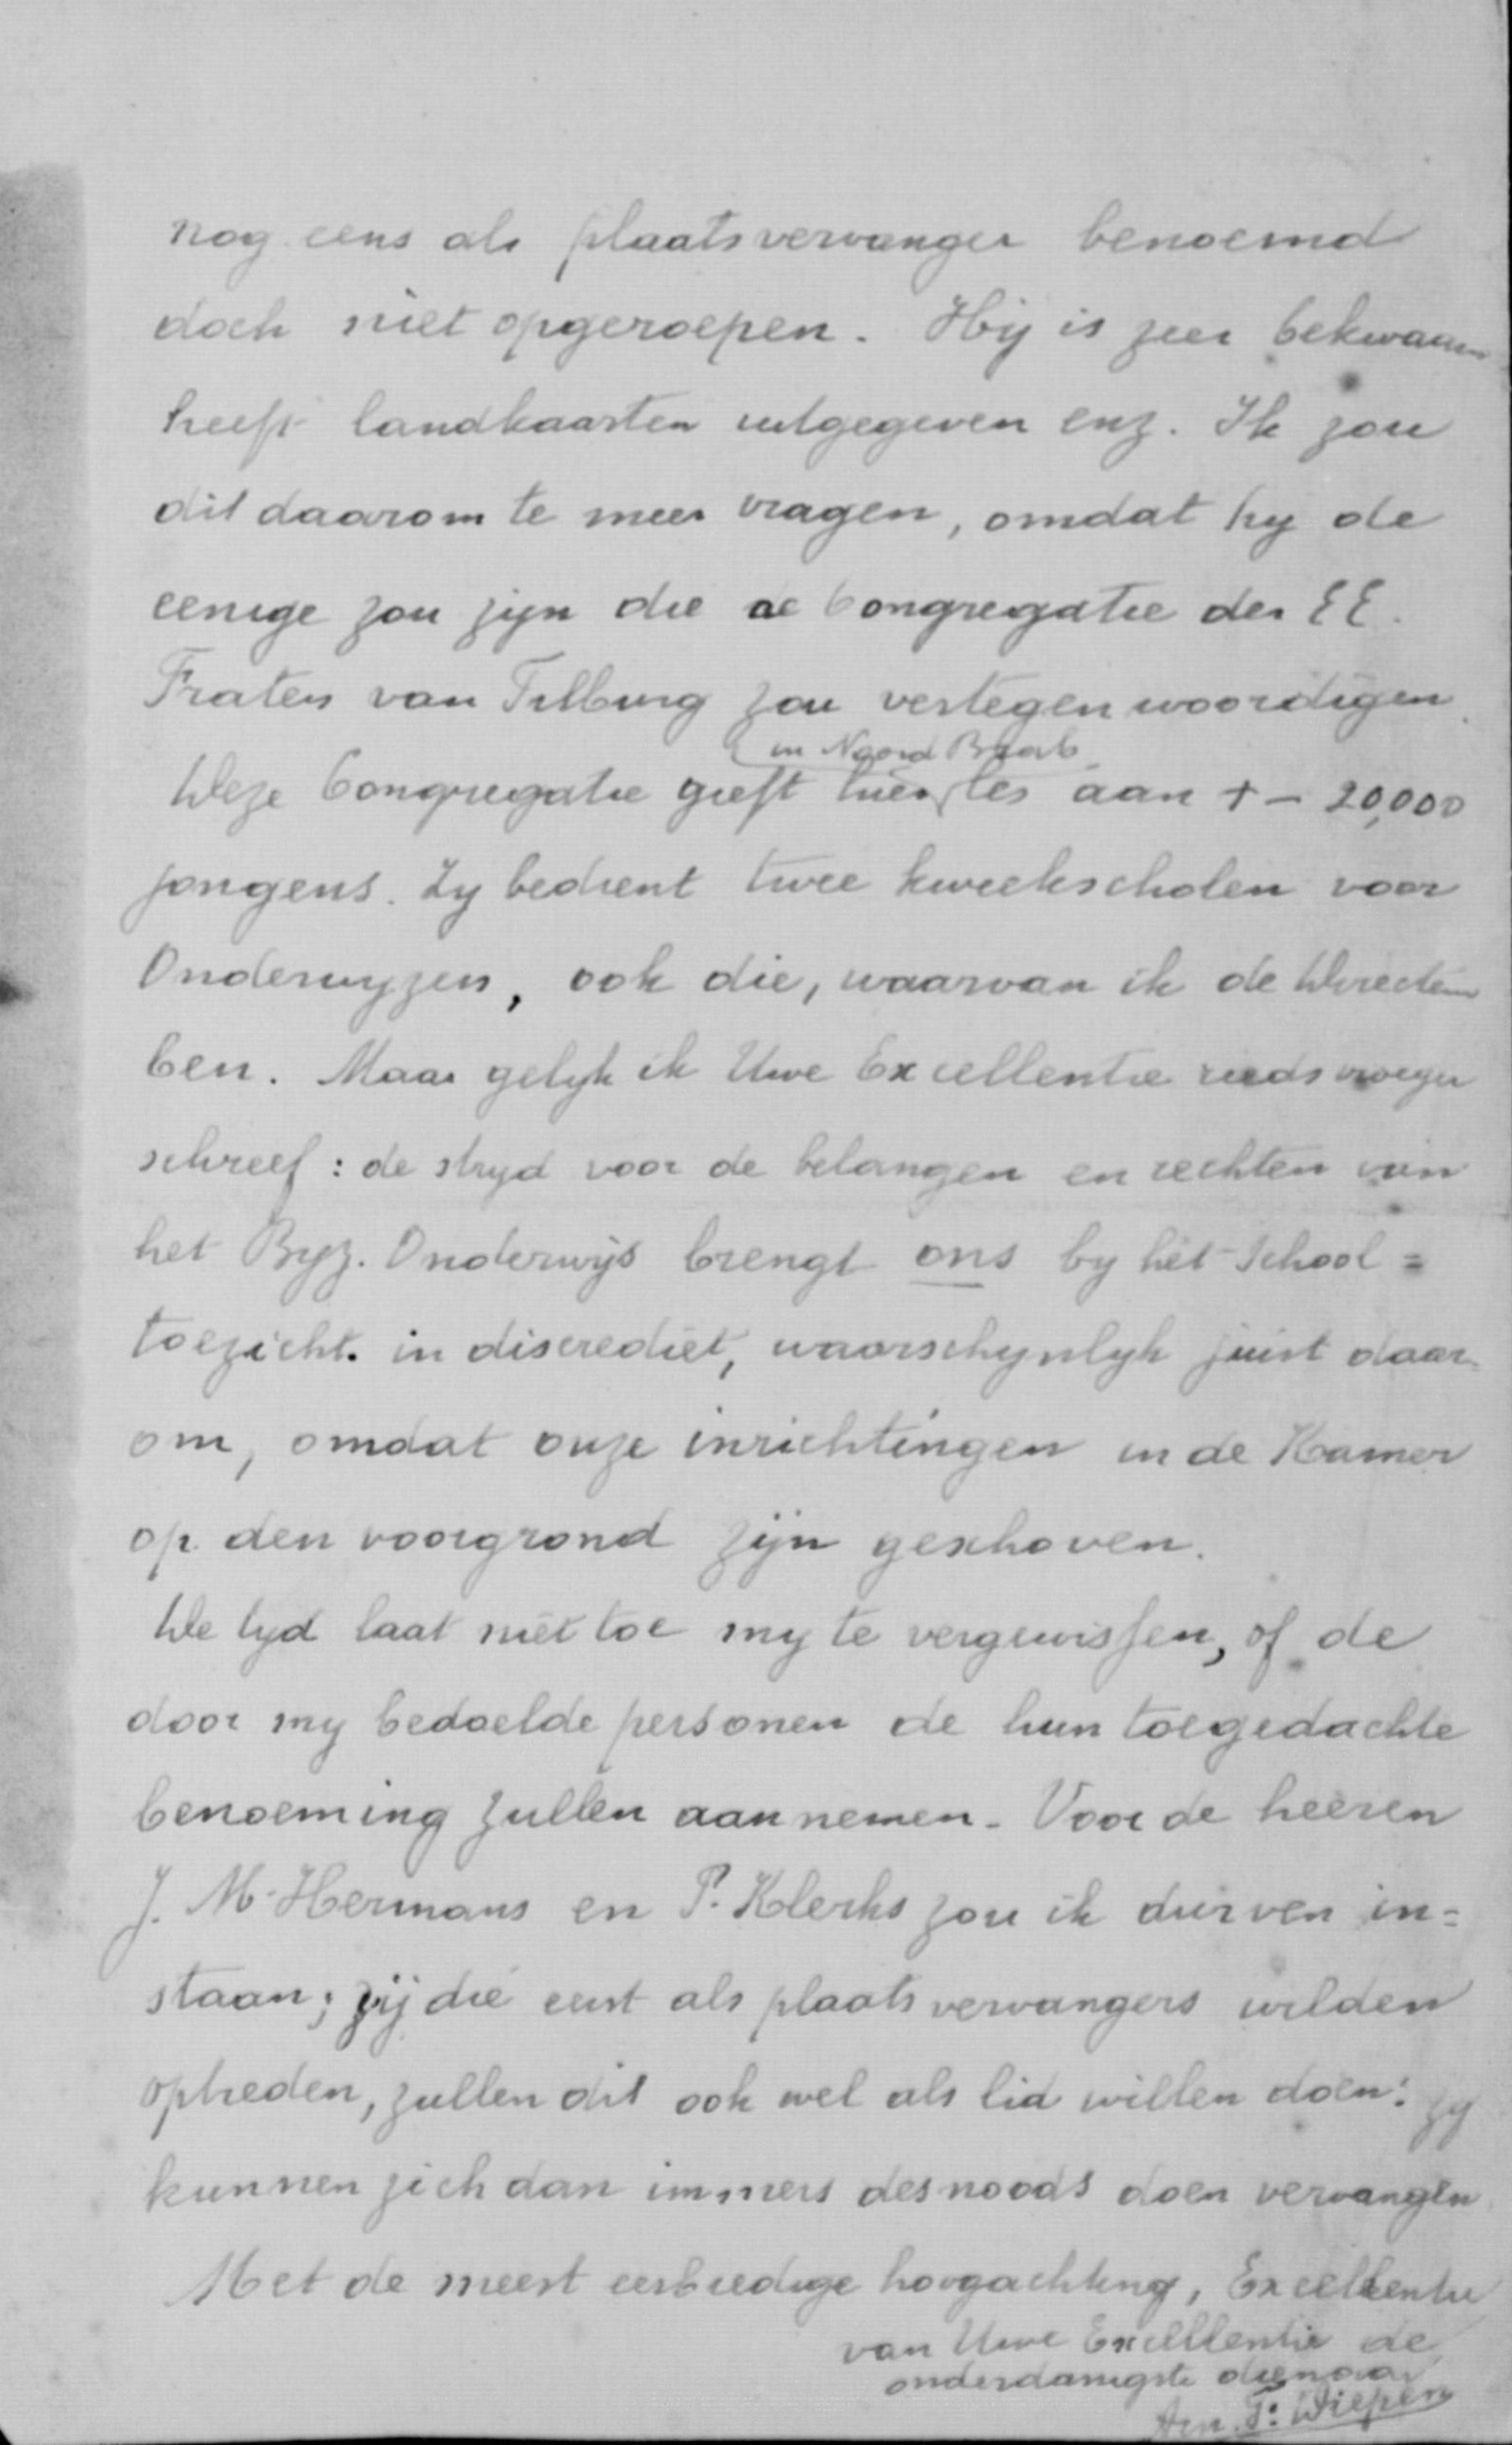 nog eens als plaatsvervanger benoemd
doch niet opgeroepen. Hij is zeer bekwaam
heeft landkaarten uitgegeven enz. Ik zou
dit daarom te meer vragen, omdat hy de
eenige zou zijn die de Congregatie der EE.
Fraters van Tilburg zou vertegenwoordigen.
in Noord Brab.
Deze Congregatie geeft hier les aan + - 20,000
jongens. Zy bedient twee kweekscholen voor
Onderwyzers, ook die, waarvan ik de Directeur
ben. Maar gelyk ik Uwe Excellentie reeds vroeger
schreef: de stryd voor de belangen en rechten van
het Byz. Onderwijs brengt ons by het School=
toezicht. in discrediet, waarschynlyk juist daar-
om, omdat onze inrichtingen in de Kamer
op den voorgrond zijn geschoven.
De tyd laat niet toe my te vergewissen, of de
door my bedoelde personen de hun toegedachte
benoeming zullen aannemen. Voor de heeren
J. M. Hermans en P. Klerks zou ik durven in=
staan; zij die eerst als plaatsvervangers wilden
optreden, zullen dit ook wel als lid willen doen: zy
kunnen zich dan immers desnoods doen vervangen
Met de meest eerbiedige hoogachting, Excellentie
van Uwe Excellentie de
onderdanigste dienaar